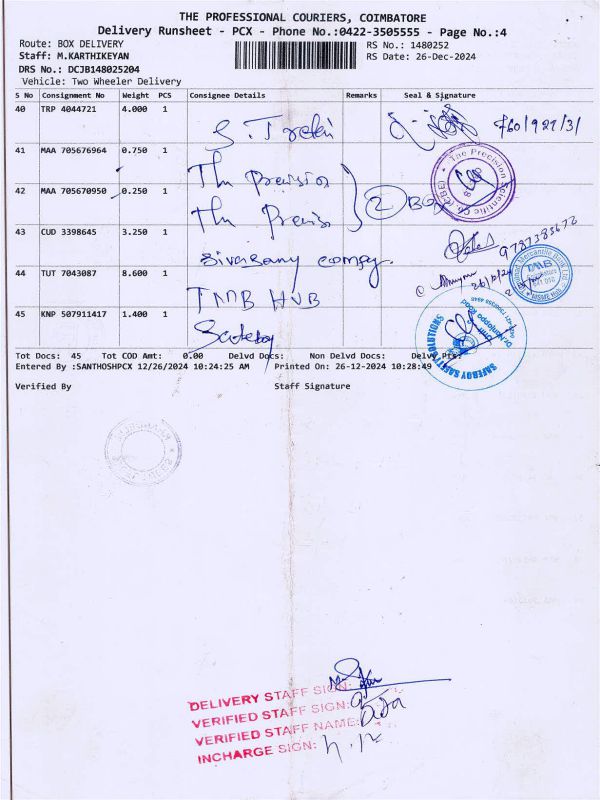 THE PROFESSIONAL COURIERS, COIMBATORE
Delivery Runsheet - PCX - Phone No.:0422-3505555 - Page No.:4
Route: BOX DELIVERY
RS No.: 1480252
Staff: M.KARTHIKEYAN
RS Date: 26-Dec-2024
DRS No.: DCJB148025204
Vehicle: Two Wheeler Delivery
S No Consignment No Weight PCS Consignee Details Remarks Seal & Signature
40 TRP 4044721 4.000 1
41 MAA 705676964 0.750 1
The Precision
42 MAA 705670950 0.250 1 2
43 CUD 3398645 3.250 1
44 TUT 7043087 8.600 1
TMB HUB
45 KNP 507911417 1.400 1
Safeboy
The Precision Scientific Co (CBE)
TMB
SAFEBOY SAFETY SOLUTIONS
Tot Docs: 45 Tot COD Amt: 0.00 Delvd Docs: Non Delvd Docs: Delvy Pts:
Entered By :SANTHOSHPCX 12/26/2024 10:24:25 AM Printed On: 26-12-2024 10:28:49
Verified By Staff Signature
DELIVERY STAFF SIGN:
VERIFIED STAFF SIGN:
VERIFIED STAFF NAME:
INCHARGE SIGN: